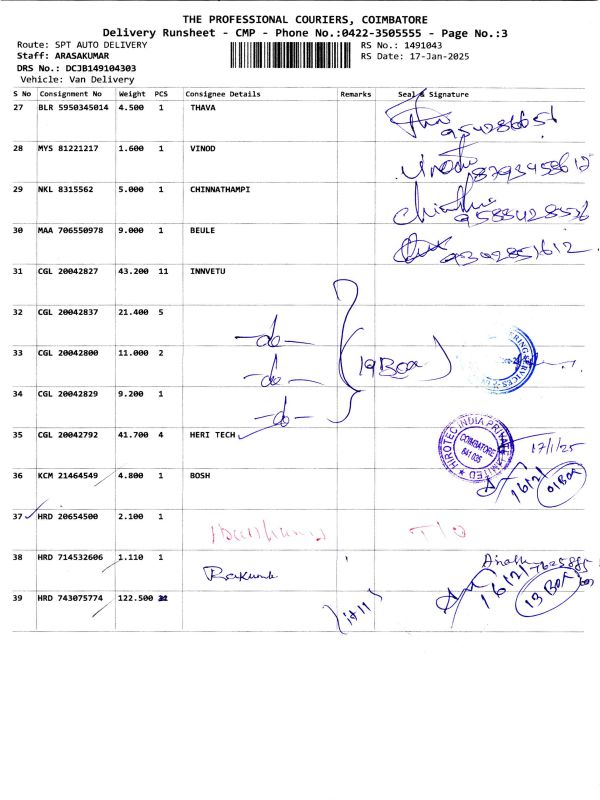 THE PROFESSIONAL COURIERS, COIMBATORE
Delivery Runsheet - CMP - Phone No.:0422-3505555 - Page No.:3
Route: SPT AUTO DELIVERY RS No.: 1491043
Staff: ARASAKUMAR RS Date: 17-Jan-2025
DRS No.: DCJB149104303
Vehicle: Van Delivery
S No Consignment No Weight PCS Consignee Details Remarks Seal & Signature
27 BLR 5950345014 4.500 1 THAVA
28 MYS 81221217 1.600 1 VINOD
29 NKL 8315562 5.000 1 CHINNATHAMPI
30 MAA 706550978 9.000 1 BEULE
31 CGL 20042827 43.200 11 INNVETU
32 CGL 20042837 21.400 5
-do-
33 CGL 20042800 11.000 2 19 Box
-do-
34 CGL 20042829 9.200 1
-do-
35 CGL 20042792 41.700 4 HERI TECH
HIROTEC INDIA PRIVATE LIMITED
COIMBATORE
641 035
17/1/25
36 KCM 21464549 4.800 1 BOSH
01 Box
37 HRD 20654500 2.100 1
38 HRD 714532606 1.110 1
39 HRD 743075774 122.500
13 Box